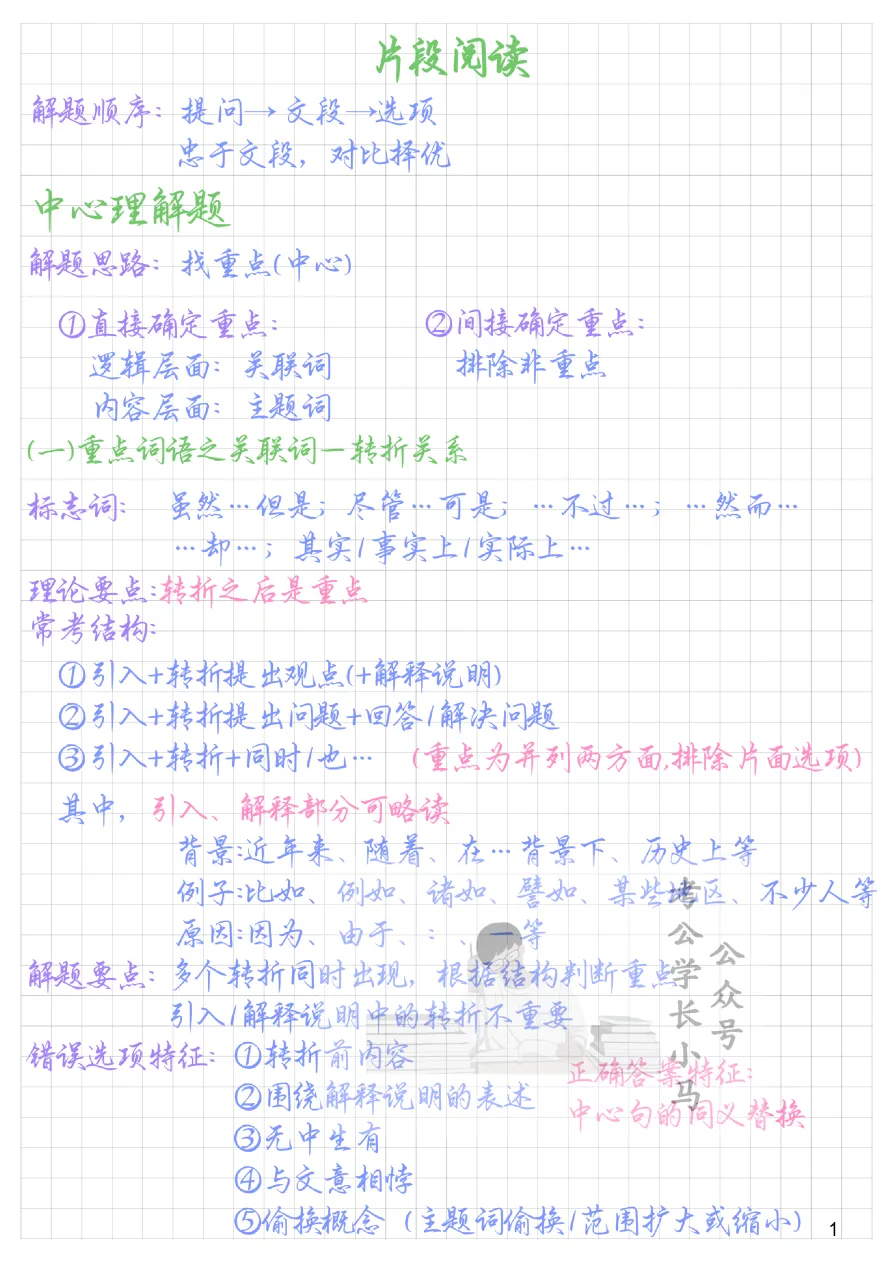 片段阅读
解题顺序：提问→文段→选项
忠于文段，对比择优
中心理解题
解题思路：找重点(中心)
①直接确定重点：
逻辑层面：关联词
内容层面：主题词
②间接确定重点：
排除非重点
(一)重点词语之关联词—转折关系
标志词： 虽然…但是；尽管…可是；…不过…；…然而…
…却…；其实/事实上/实际上…
理论要点:转折之后是重点
常考结构:
①引入+转折提出观点(+解释说明)
②引入+转折提出问题+回答/解决问题
③引入+转折+同时/也… (重点为并列两方面,排除片面选项)
其中，引入、解释部分可略读
背景:近年来、随着、在…背景下、历史上等
例子:比如、例如、诸如、譬如、某些地区、不少人等
原因:因为、由于、：、—等
解题要点：多个转折同时出现，根据结构判断重点
引入/解释说明中的转折不重要
错误选项特征：①转折前内容
②围绕解释说明的表述
③无中生有
④与文意相悖
⑤偷换概念（主题词偷换/范围扩大或缩小）
正确答案特征:
中心句的同义替换
公众号
考公学长小马
1